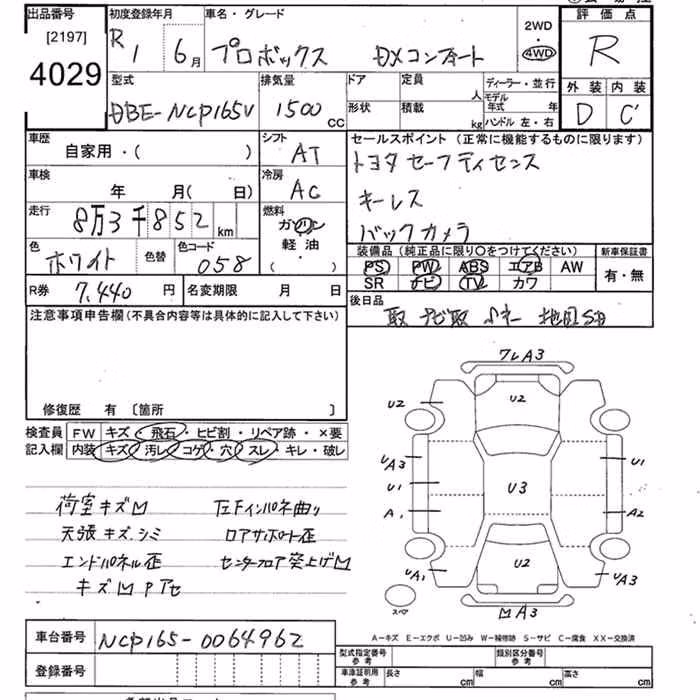 出品番号
[2197]
4029
初度登録年月
R1 6月
車名・グレード
プロボックス DXコンフォート
2WD
・
4WD
評価点
R
外装 内装
D C'
型式
DBE-NCP165V
排気量
1500 cc
ドア
定員
人
形状
積載
kg
ディーラー・並行
モデル年式 年
ハンドル 左・右
車歴
自家用・( )
シフト
AT
セールスポイント (正常に機能するものに限ります)
トヨタセーフティセンス
キーレス
バックカメラ
車検
年 月( 日)
冷房
AC
走行
8万3千852 km
燃料
ガソリン
・
軽油
( )
色
ホワイト
色替
色コード
058
装備品 (純正品に限り〇をつけてください)
PS PW ABS エアB AW
SR ナビ TV カワ
新車保証書
有・無
R券 7,440 円
名変期限 月 日
後日品
取 ナビ取
注意事項申告欄(不具合内容等は具体的に記入して下さい)
修復歴 有 〔箇所 〕
検査員記入欄
FW キズ・飛石・ヒビ割・リペア跡・×要
内装 キズ・汚レ・コゲ・穴・スレ・キレ・破レ
荷室キズ凹
天張キズ、シミ
エンドパネル歪
キズ凹Pアセ
左Fインパネ曲り
ロアサポート歪
センターフロア突上ゲ凹
フレA3
U2
U2
UA3
U1
U1
U3
A1
A2
U2
UA1
UA3
スペア
凹A3
A－キズ E－エクボ U－凹み W－補修跡 S－サビ C－腐食 XX－交換済
車台番号
NCP165-0064962
登録番号
型式指定番号
参考
類別区分番号
参考
車庫証明用
参考
長さ cm
幅 cm
高さ cm